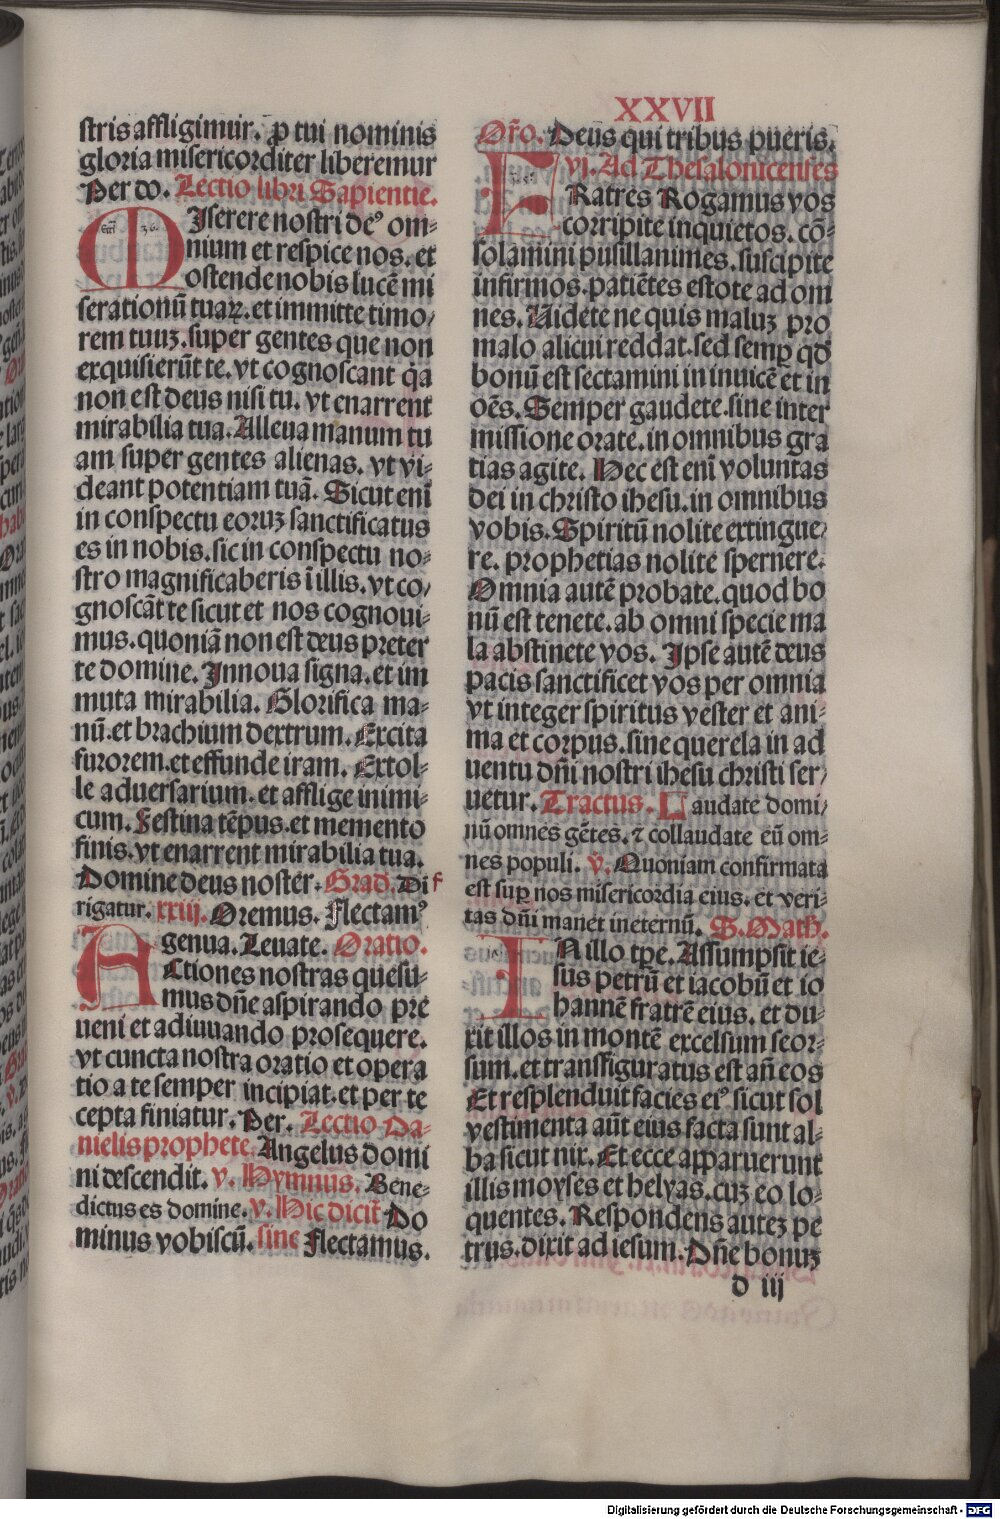 XXVII
stris affligimur. ꝑ tui nominis
gloria misericorditer liberemur
Per do. Lectio libri Sapientie.
MIserere nostri deꝰ om-
nium et respice nos. et
ostende nobis lucē mi
serationū tuaꝝ. et immitte timo/
rem tuuꝫ. super gentes que non
exquisierūt te. vt cognoscant q̇a
non est deus nisi tu. vt enarrent
mirabilia tua. Alleua manum tu
am super gentes alienas. vt vi-
deant potentiam tuā. Sicut enī
in conspectu eoruꝫ sanctificatus
es in nobis. sic in conspectu no-
stro magnificaberis ī illis. vt co/
gnoscāt te sicut et nos cognoui-
mus. quoniā non est deus preter
te domine. Innoua signa. et im
muta mirabilia. Glorifica ma-
nū. et brachium dextrum. Excita
furorem. et effunde iram. Extol-
le aduersarium. et afflige inimi-
cum. Festina tēpus. et memento
finis. vt enarrent mirabilia tua.
Domine deus noster. Grad. Di
rigatur. xxiij. Oremus. Flectamꝰ
genua. Leuate. Oratio.
ACtiones nostras quesu-
mus dn̄e aspirando pre
ueni et adiuuando prosequere.
vt cuncta nostra oratio et opera
tio a te semper incipiat. et per te
cepta finiatur. Per. Lectio Da-
nielis prophete. Angelus domi
ni descendit. v. Hymnus. Bene-
dictus es domine. v. Hic dicit̄ Do
minus vobiscū. sine Flectamus.
Or̄o. Deus qui tribus pueris.
vj. Ad Thesalonicenses
FRatres Rogamus vos
corripite inquietos. cō-
solamini pusillanimes. suscipite
infirmos. patiētes estote ad om
nes. Videte ne quis maluꝫ pro
malo alicui reddat. sed semꝑ qd̄
bonū est sectamini in inuicē et in
oēs. Semper gaudete. sine inter
missione orate. in omnibus gra
tias agite. Hec est enī voluntas
dei in christo ihesu. in omnibus
vobis. Spiritū nolite extingue/
re. prophetias nolite spernere.
Omnia autē probate. quod bo
nū est tenete. ab omni specie ma
la abstinete vos. Ipse autē deus
pacis sanctificet vos per omnia
vt integer spiritus vester et ani-
ma et corpus. sine querela in ad
uentu dn̄i nostri ihesu christi ser/
uetur. Tractus. Laudate domi/
nū omnes gētes. ⁊ collaudate eū om-
nes populi. v̄. Quoniam confirmata
est suꝑ nos misericordia eius. et veri-
tas dn̄i manet in eternū. S. Math.
IN illo tꝑe. Assumpsit ie-
sus petrū et iacobū et io
hannē fratrē eius. et du-
xit illos in montē excelsum seor-
sum. et transfiguratus est an̄ eos
Et resplenduit facies eiꝰ sicut sol
vestimenta aūt eius facta sunt al-
ba sicut nix. Et ecce apparuerunt
illis moyses et helyas. cuꝫ eo lo-
quentes. Respondens auteꝫ pe
trus. dixit ad iesum. Dn̄e bonuꝫ
d iij
Digitalisierung gefördert durch die Deutsche Forschungsgemeinschaft - DFG